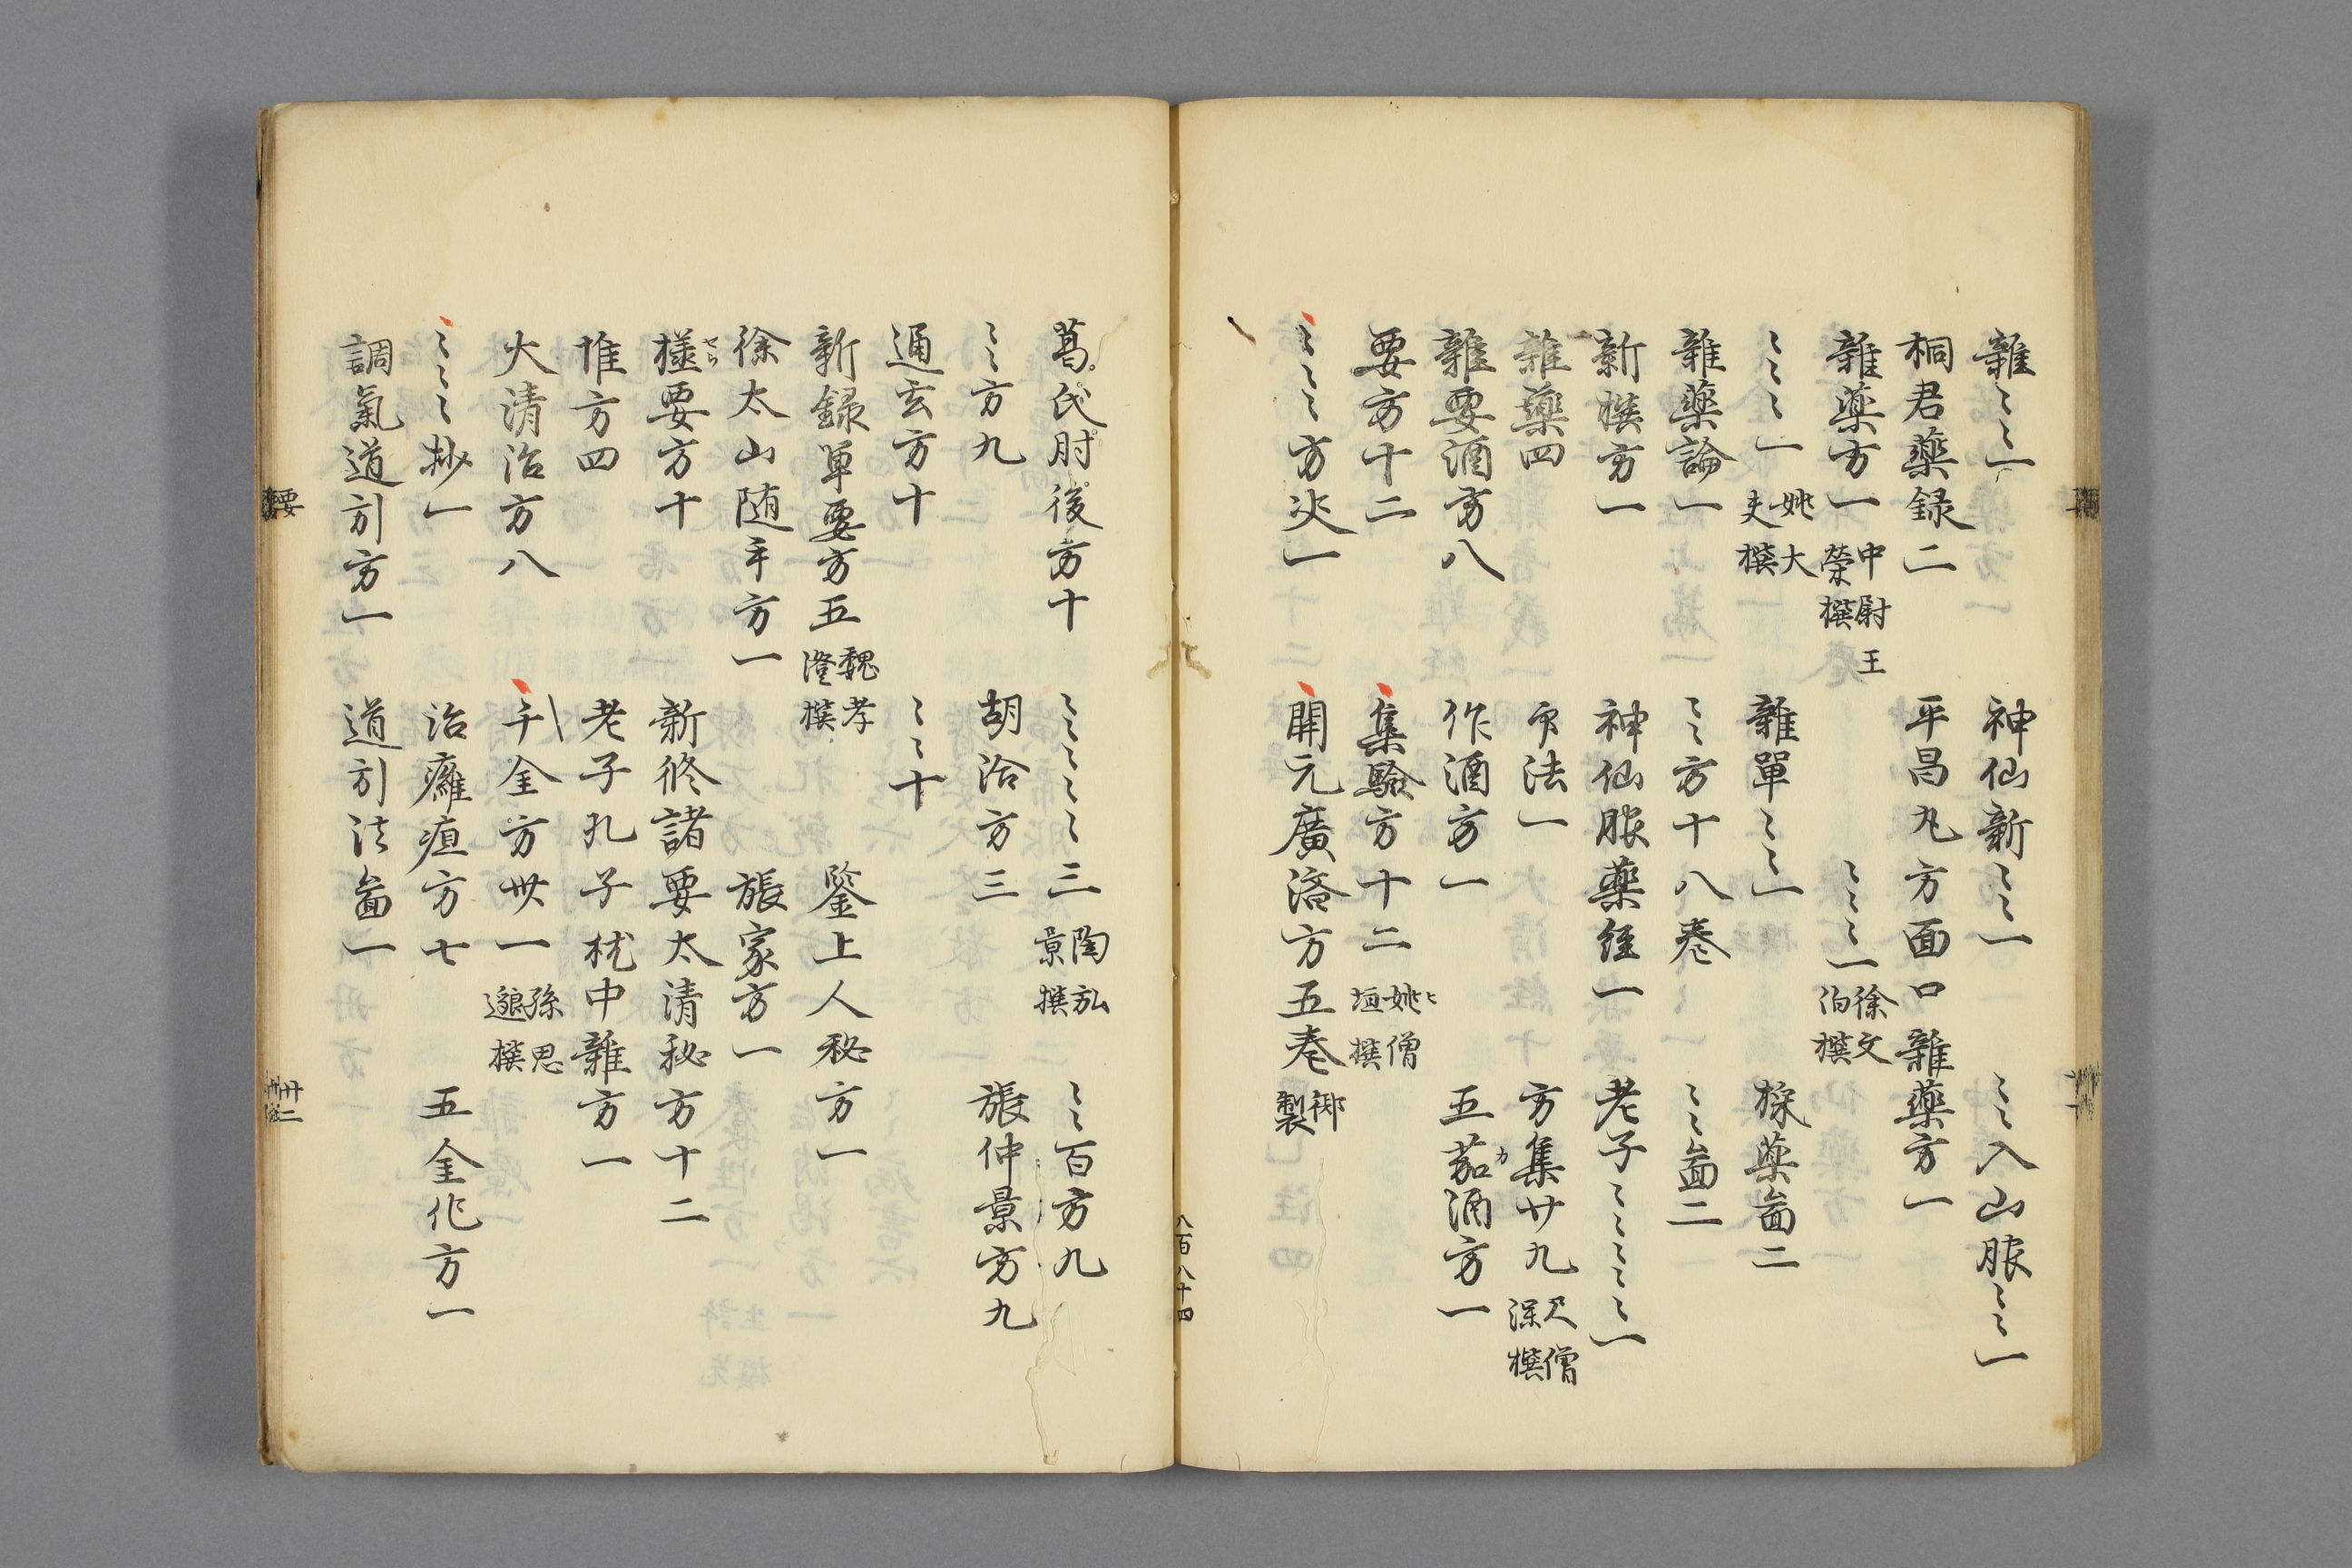 雜〻〻一　神仙新〻〻一　〻〻入山服〻〻一
桐君藥録二　平昌丸方面口雜藥方一
雜藥方一 中尉王榮撰　〻〻〻一 徐文伯撰
〻〻〻一 姚大夫撰　雜單〻〻一　採藥畣二
雜藥論一　〻〻方十八巻〻一　〻〻畣二
新撰方一　神仙服藥経一　老子〻〻〻〻一
雜藥四　法一　方集廿九 尺僧深撰
雜要酒方八　作酒方一　五茄酒方一 カ
要方十二　集驗方十二 姚僧垣撰
〻〻〻方一　開元廣済方五巻 製
八百八十四
葛氏肘後方十　〻〻〻〻三 陶弘景撰　〻〻百方九
〻〻方九　胡洽方三　張仲景方九
通玄方十　〻〻十
新録單要方五 魏孝澄撰　鑒上人秘方一
徐太山随手方一　張家方一
樣要方十　新修諸要太清秘方十二
惟方四　老子孔子枕中雜方一
大清治方八　千金方卅一 孫思邈撰
〻〻〻抄一　治癰疽方七　五金化方一
調氣道引方一　道引法畣一
要
廿二